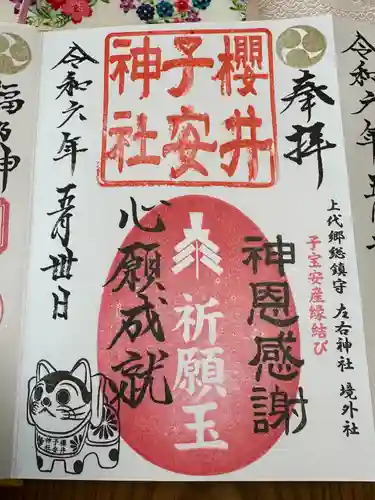 奉拝
上代郷総鎮守 左右神社 境外社
子宝安産縁結び
櫻井
子安
神社
神恩感謝
祈願玉
心願成就
令和六年
五月卅日
櫻井
子安
神社